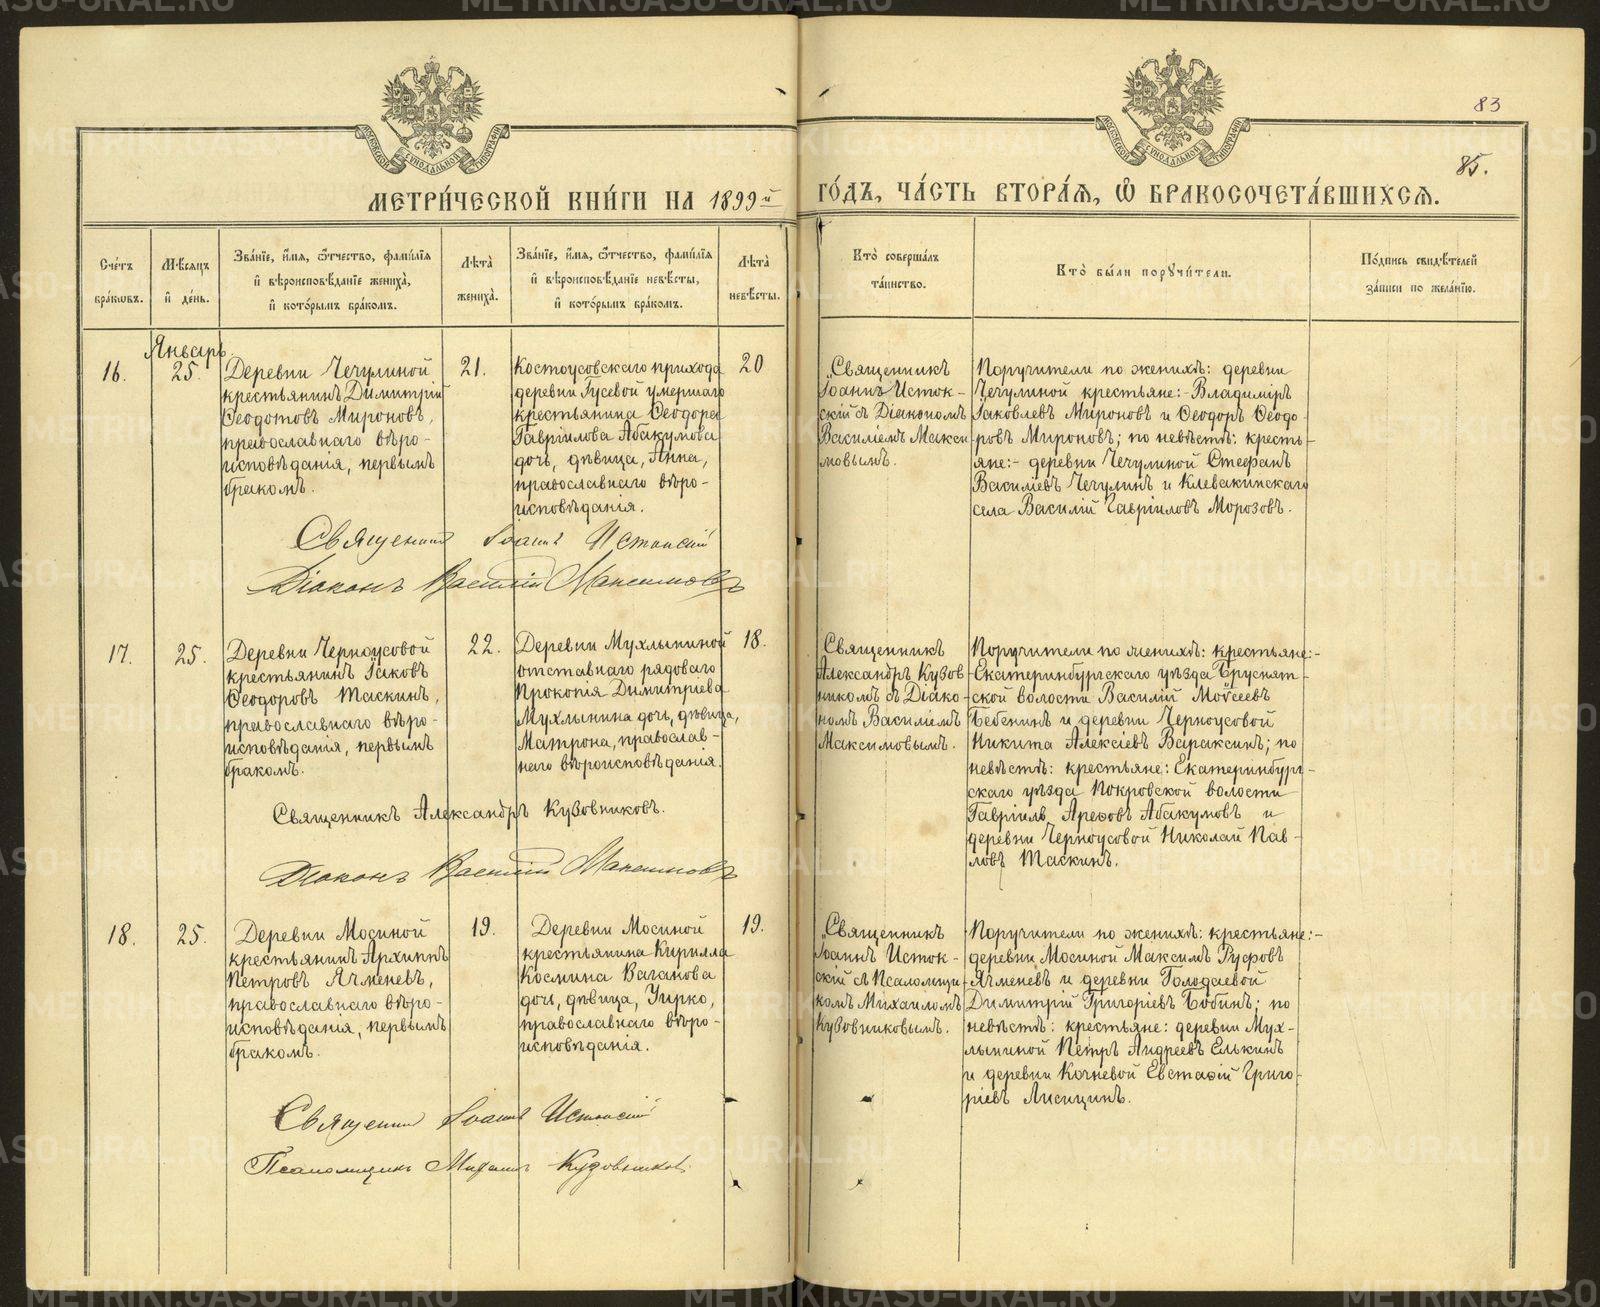 83
85.
МЕТРИ́ЧЕСКОЙ КНИ́ГИ НА 1899й ГО́ДЪ, ЧА́СТЬ ВТОРА́Я, Ѡ БРАКОСОЧЕТА́ВШИХСѦ.
Сче́тъ
бра́кѡвъ.
Мѣ́сяцъ
и҆ де́нь.
Зва́нїе, и҆́мя, ѻ҆́тчество, фами́лїя
и҆ вѣроисповѣ́данїе жениха̀,
и҆ кото́рымъ бра́комъ.
Лѣта̀
жениха̀.
Зва́нїе, и҆́мя, ѻ҆́тчество, фами́лїя
и҆ вѣроисповѣ́данїе невѣ́сты,
и҆ кото́рымъ бра́комъ.
Лѣта̀
невѣ́сты.
Кто̀ соверша́лъ
та́инство.
Кто̀ бы́ли порꙋчи́тели.
По́дпись свидѣ́телей
за́писи по жела́нїю.
Январь.
16.
25.
Деревни Чечулиной
крестьянинъ Димитрій
Ѳеодотовъ Мироновъ,
православнаго вѣро-
исповѣданія, первымъ
бракомъ.
21.
Костоусовскаго прихода
деревни Гусевой умершаго
крестьянина Ѳеодора
Гавріилова Абакумова
дочь, дѣвица, Анна,
православнаго вѣро-
исповѣданія.
20
Священникъ
Іоаннъ Исток-
скій съ Діакономъ
Василіемъ Макси
мовымъ.
Поручители по женихѣ: деревни
Чечулиной крестьяне:- Владиміръ
Іаковлевъ Мироновъ и Ѳеодоръ Ѳеодо-
ровъ Мироновъ; по невѣстѣ: кресть-
яне:- деревни Чечулиной Стефанъ
Василіевъ Чечулинъ и Клевакинскаго
села Василій Гавріиловъ Морозовъ.
Священникъ Іоаннъ Истокскій
Діаконъ Василій Максимовъ
17.
25.
Деревни Черноусовой
крестьянинъ Іаковъ
Ѳеодоровъ Таскинъ,
православнаго вѣро-
исповѣданія, первымъ
бракомъ.
22.
Деревни Мухлыниной
отставнаго рядоваго
Прокопія Димитріева
Мухлынина дочь, дѣвица,
Матрона, православ-
наго вѣроисповѣданія.
18.
Священникъ
Александръ Кузов
никовъ съ Діако-
номъ Василіемъ
Максимовымъ.
Поручители по женихѣ: крестьяне:-
Екатеринбургскаго уѣзда Бруснят-
ской волости Василій Моѵсеевъ
Бебенинъ и деревни Черноусовой
Никита Алексіевъ Вараксинъ; по
невѣстѣ: крестьяне: Екатеринбург-
скаго уѣзда Покровской волости
Гавріилъ Арефовъ Абакумовъ и
деревни Черноусовой Николай Пав-
ловъ Таскинъ.
Священникъ Александръ Кузовниковъ.
Діаконъ Василій Максимовъ
18.
25.
Деревни Мосиной
крестьянинъ Архиппъ
Петровъ Ячменевъ,
православнаго вѣро-
исповѣданія, первымъ
бракомъ.
19.
Деревни Мосиной
крестьянина Кирилла
Космина Ваганова
дочь, дѣвица,
православнаго вѣро-
исповѣданія.
19.
Священникъ
Іоаннъ Исток-
скій съ Псаломщи-
комъ Михаиломъ
Кузовниковымъ.
Поручители по женихѣ: крестьяне:-
деревни Мосиной Максимъ Руфовъ
Ячменевъ и деревни Голодаевой
Димитрій Григоріевъ Бобинъ; по
невѣстѣ: крестьяне: деревни Мух-
лыниной Петръ Андреевъ Елькинъ
и деревни Кочневой Евстафій Григо-
ріевъ Лисицинъ.
Священникъ Іоаннъ Истокскій
Псаломщикъ Михаилъ Кузовниковъ
METRIKI.GASO-URAL.RU